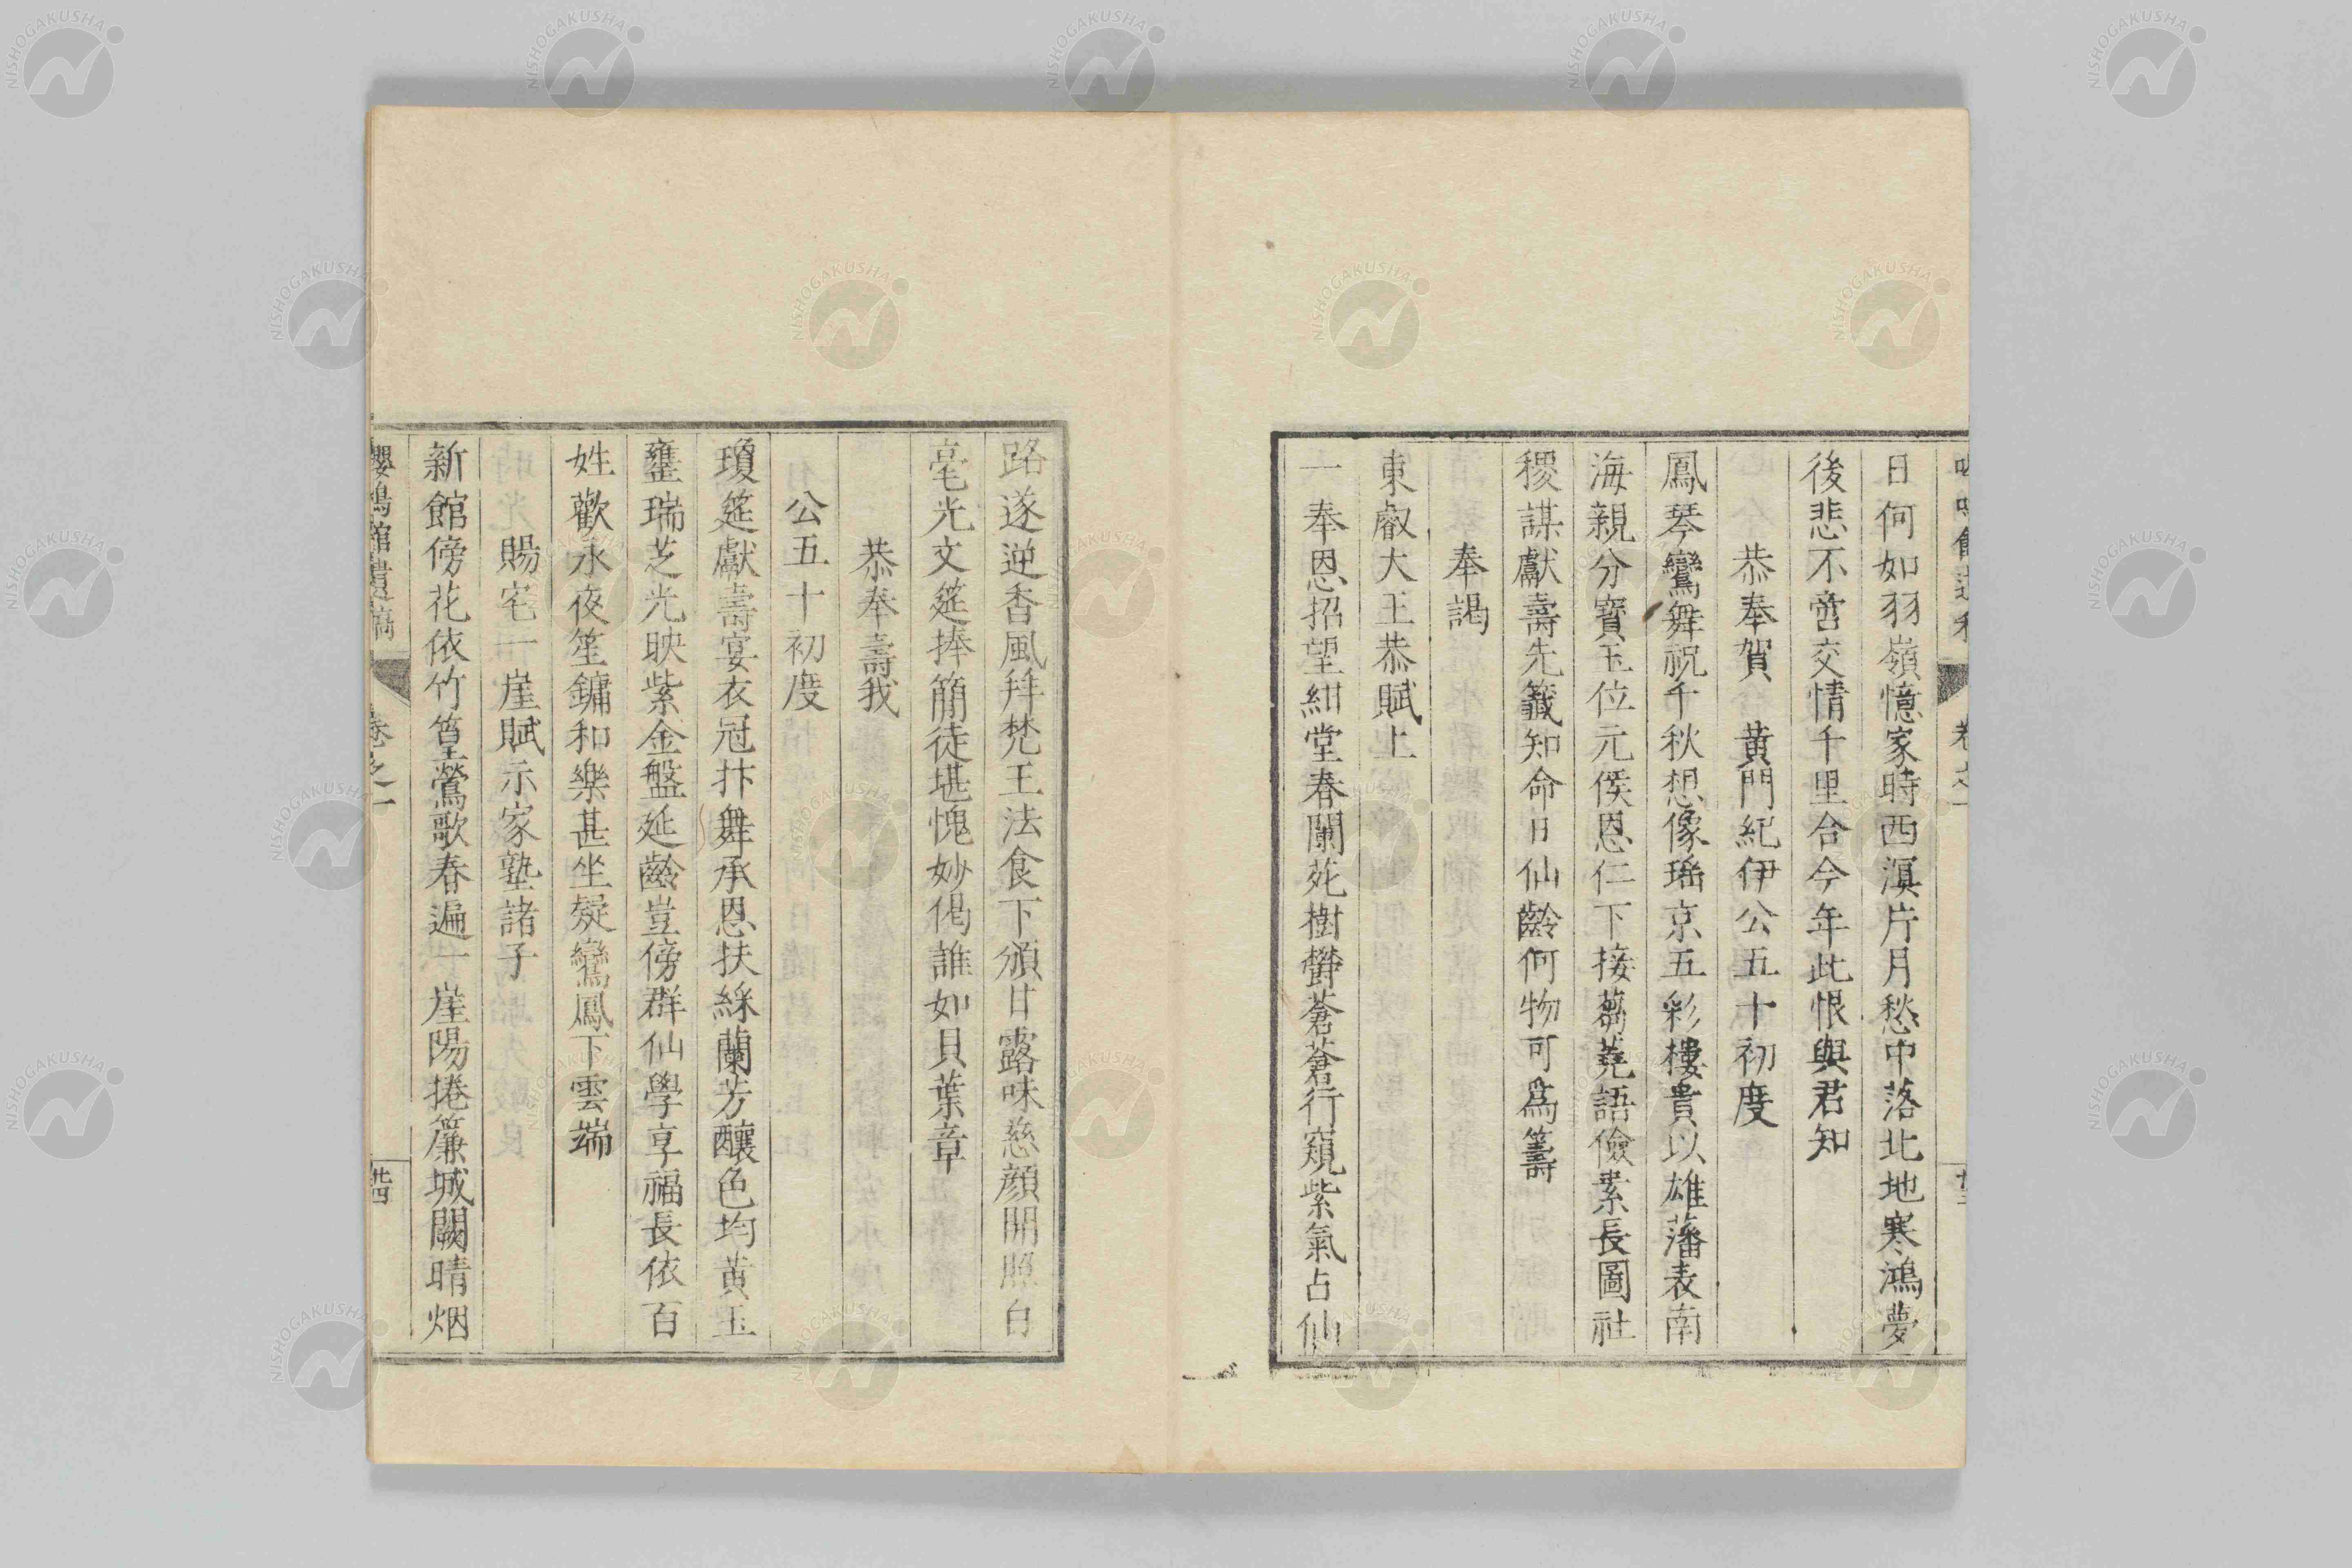 日何如羽嶺憶家時西溟片月愁中落北地寒鴻夢
後悲不啻交情千里合今年此恨與君知
恭奉賀 黄門紀伊公五十初度
鳳琴鸞舞祝千秋想像瑤京五彩樓貴以雄藩表南
海親分寶玉位元侯恩仁下接蒭蕘語儉素長圖社
稷謀獻壽先籤知命日仙齡何物可爲籌
奉謁
東叡大王恭賦上
一奉恩招望紺堂春闌苑樹欝蒼蒼行窺紫氣占仙
路遂逆香風拜梵王法食下頒甘露味慈顔開照白
毫光文筵捧簡徒堪愧妙偈誰如貝葉章
恭奉壽我
公五十初度
瓊筵獻壽宴衣冠抃舞承恩扶綵蘭芳釀色均黄玉
罋瑞芝光映紫金盤延齡豈傍群仙學享福長依百
姓歡永夜笙鏞和樂甚坐疑鸞鳳下雲端
賜宅一崖賦示家塾諸子
新館傍花依竹篁鶯歌春遍一崖陽捲簾城闕晴烟
嚶鳴館遺稿 卷之一 廿四
NISHOGAKUSHA